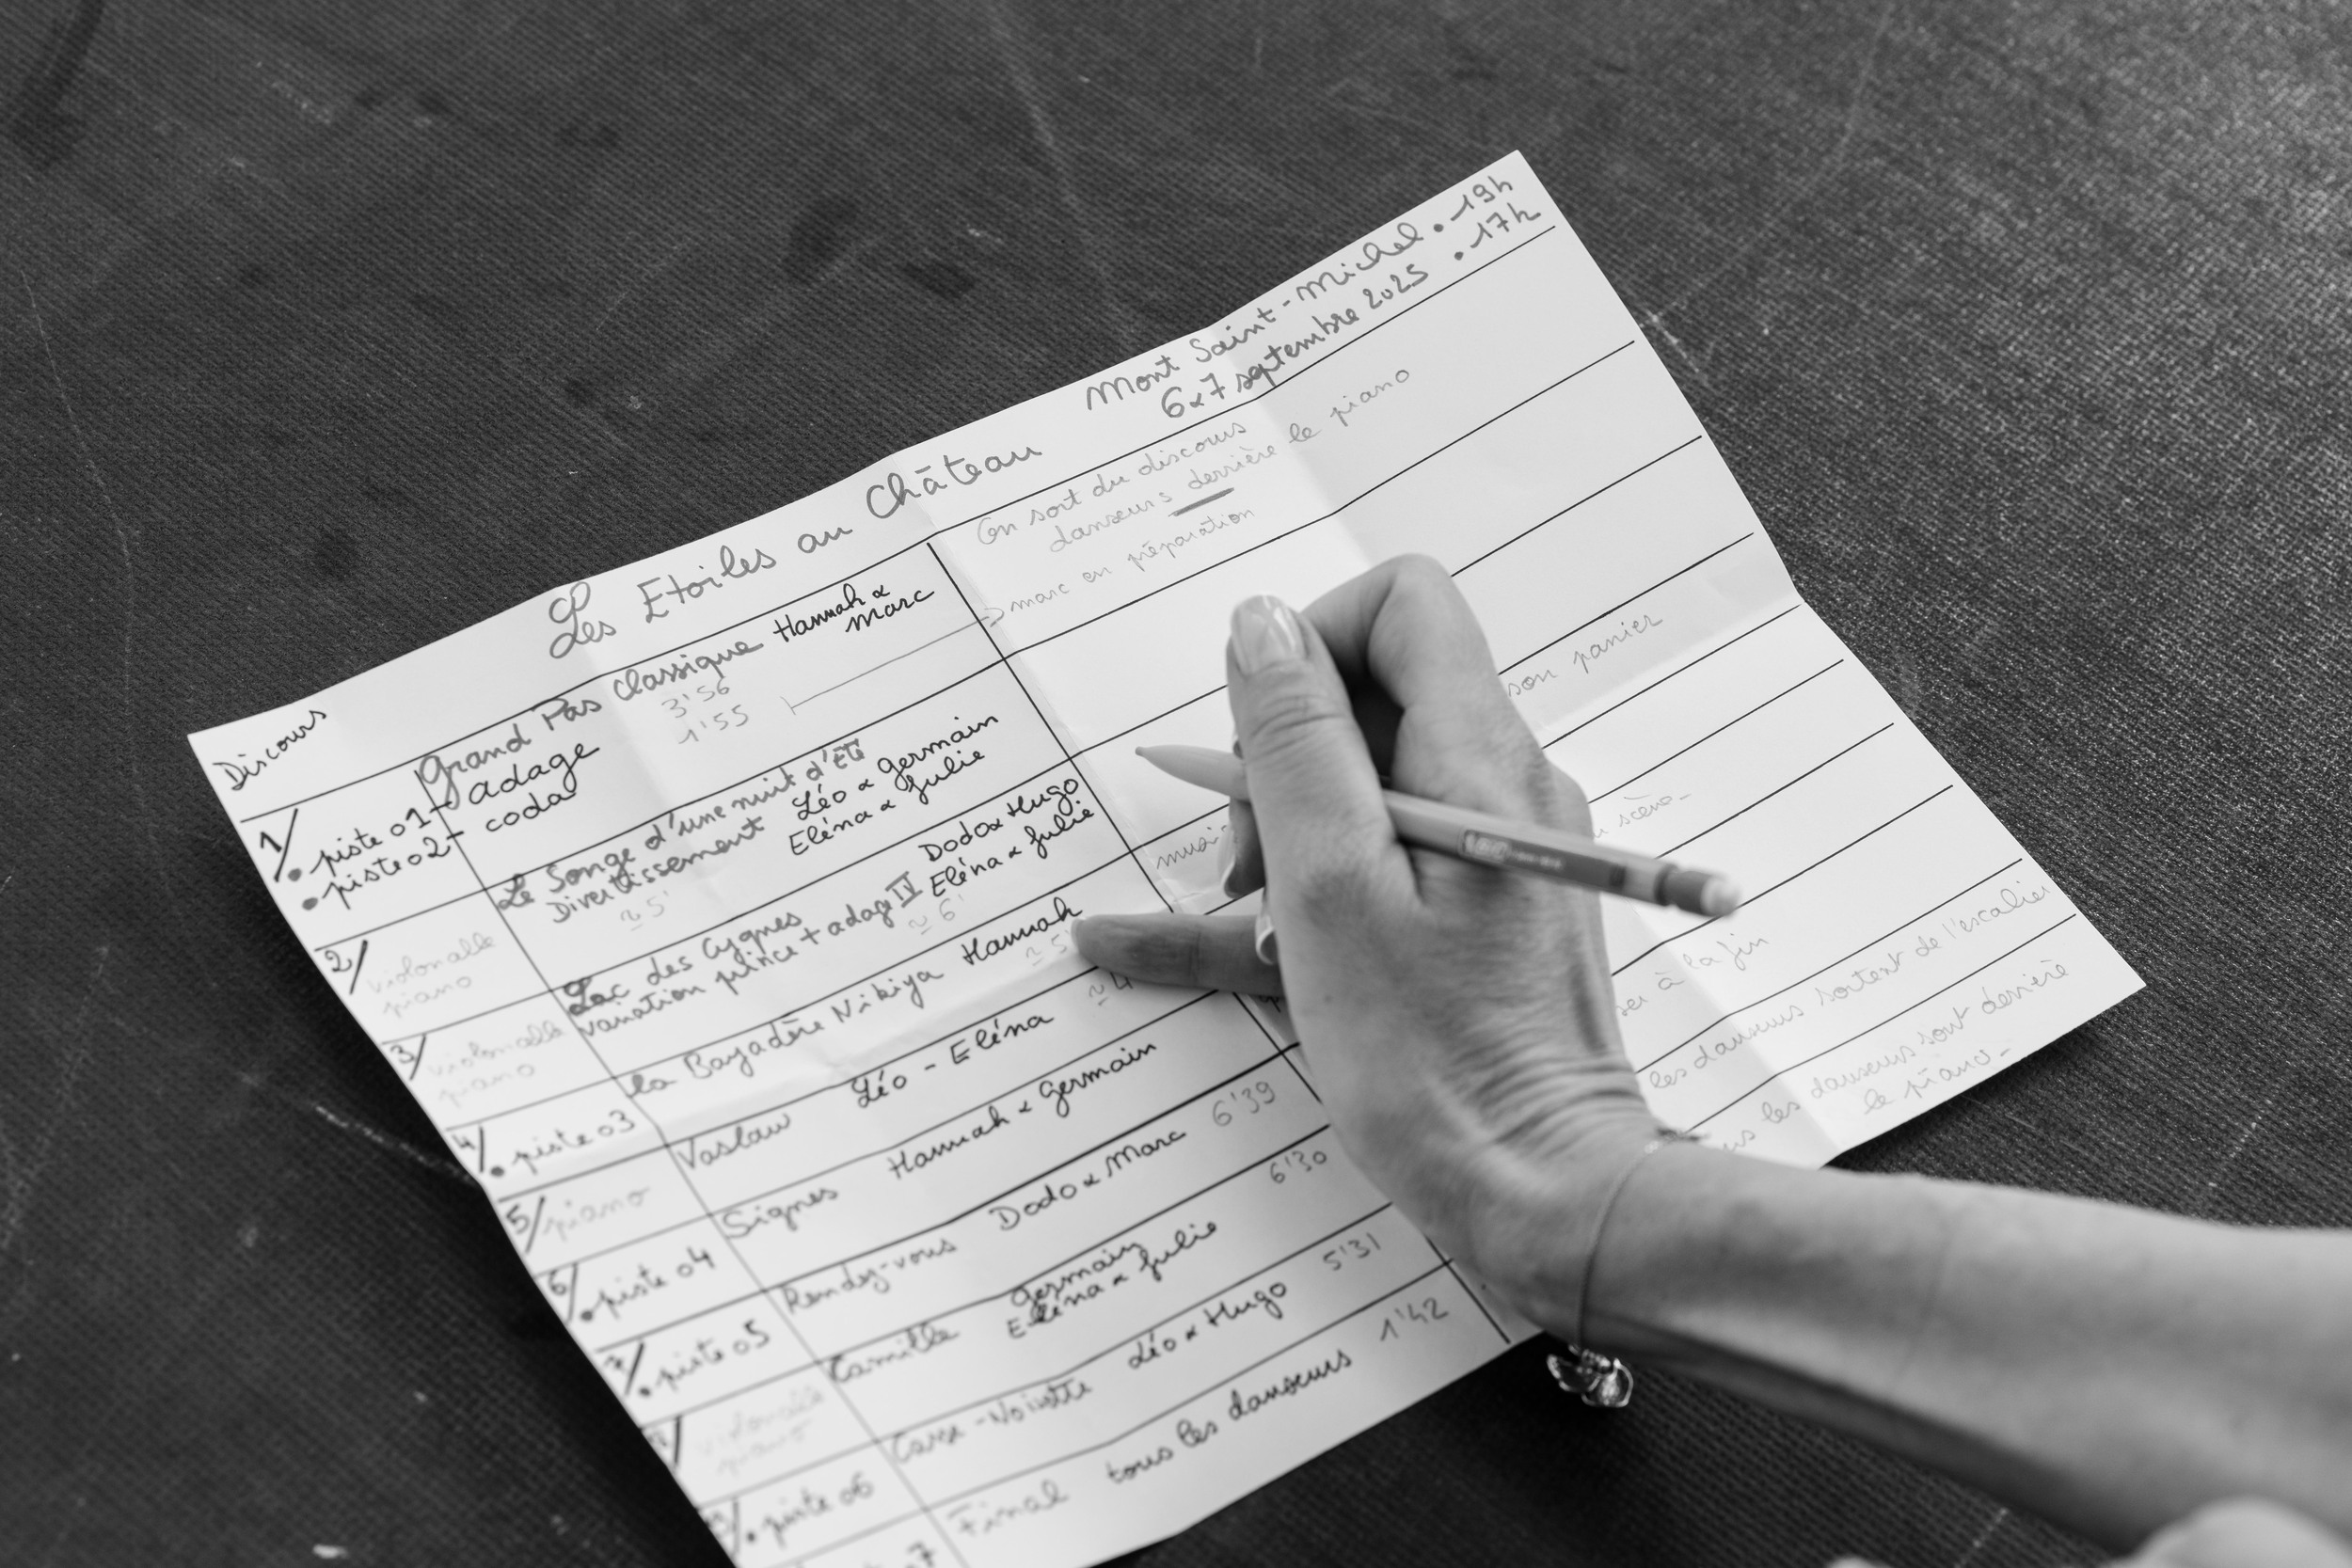 Les Etoiles au Château
Mont Saint-Michel • 19h
6 & 7 septembre 2025 • 17h
Discours
1/
• piste 01 - adage
• piste 02 - coda
Grand Pas Classique Hannah &
Marc
3'56
1'55
On sort du discours
danseurs derrière le piano
marc en préparation
2/ violoncelle
piano
Le Songe d'une nuit d'été
Divertissement Léo & Germain
Eléna & Julie
≈ 5'
3/ violoncelle
piano
Lac des Cygnes Dodo & Hugo
variation prince + adage IV Eléna & Julie
≈ 6'
4/ • piste 03
la Bayadère Nikiya Hannah
≈ 5'
son panier
5/ piano
Vaslaw Léo - Eléna ≈ 4
6/ • piste 04
Signes Hannah & Germain
scène
7/ • piste 05
Rendez-vous Dodo & Marc 6'39
violoncelle
piano
Camille Germain 6'30
Eléna & Julie
à la fin
/ • piste 06
Casse-Noisette Léo & Hugo 5'31
les danseurs sortent de l'escalier
7
Final tous les danseurs 1'42
les danseurs sont derrière
le piano -